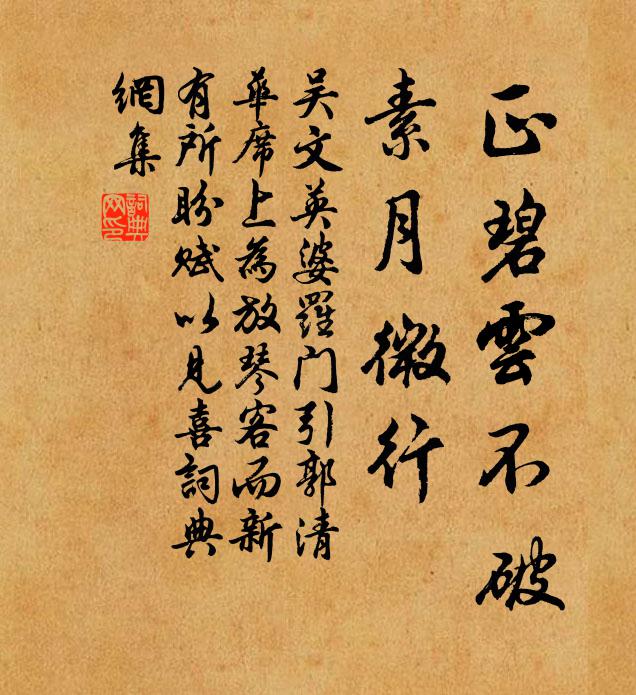 正碧雲不破
素月微行
吴文英婆羅门引郭清
華席上為放琴客而新
有所盼賦以見喜詞典
網集
詞典
网印